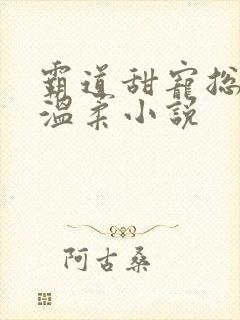 霸道甜寵总
溫柔小說
阿古桑